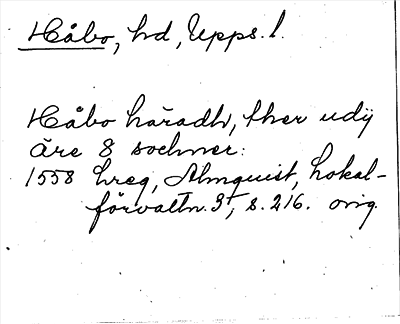 Håbo, hd, Upps. l.
Håbo häradh, ther udij
äre 8 sochner:
1558 hreg, Almquist, Lokal-
förvaltn. 3, s. 216. orig.